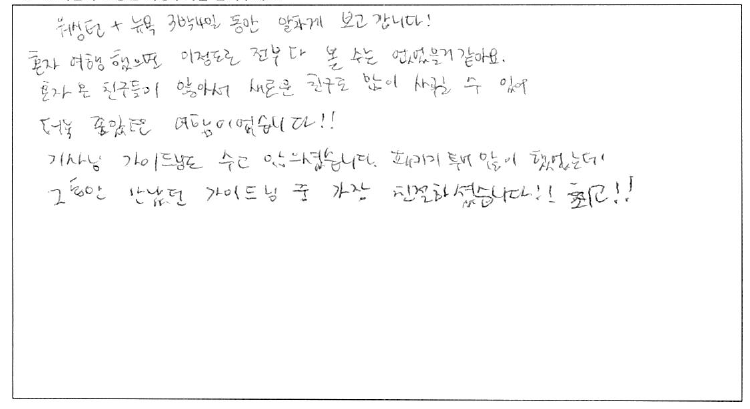 워싱턴 + 뉴욕 3박4일 동안 알차게 보고 갑니다!
혼자 여행 했으면 이정도로 전부 다 볼 수는 없었을거 같아요.
혼자 온 친구들이 많아서 새로운 친구도 많이 사귈 수 있어
더욱 좋았던 여행이었습니다!!
기사님 가이드님도 수고 많으셨습니다. 패키지 투어 많이 했었는데
그동안 만났던 가이드님 중 가장 친절하셨습니다!! 최고!!